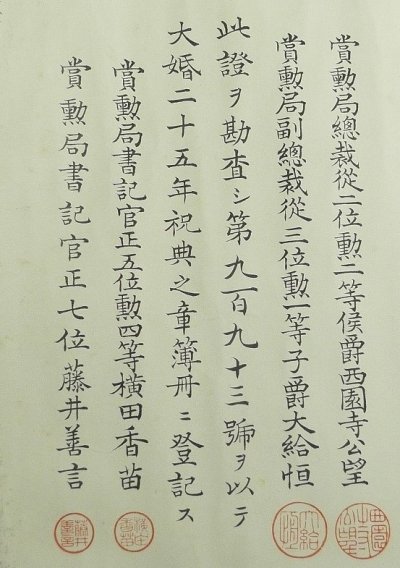 賞勲局總裁從二位勲二等侯爵西園寺公望
賞勲局副總裁從三位勲一等子爵大給恒
此證ヲ勘査シ第九百九十三號ヲ以テ
大婚二十五年祝典之章簿冊ニ登記ス
賞勲局書記官正五位勲四等横田香苗
賞勲局書記官正七位藤井善言